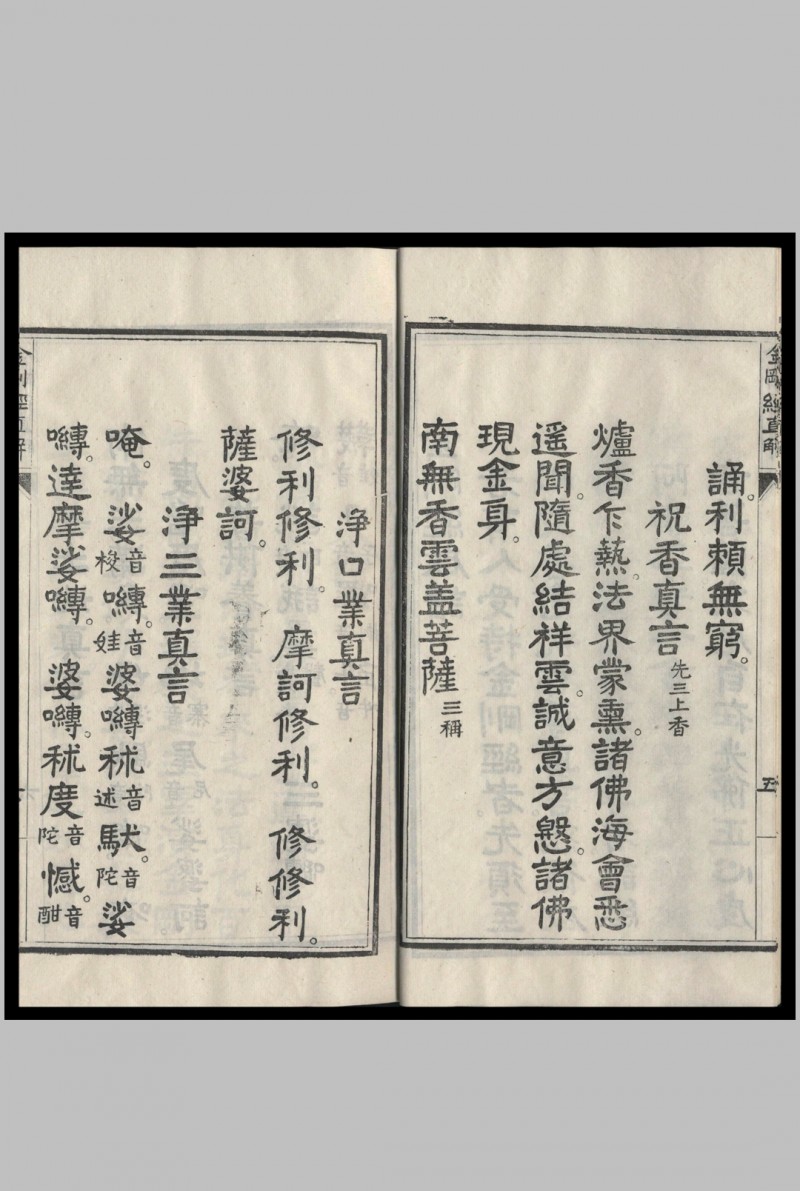 金剛經直解
五
誦。利賴無窮。
祝香真言 先三上香
爐香乍爇。法界蒙熏。諸佛海會悉
遥聞。隨處結祥雲。誠意方慇。諸佛
現金身。
南無香雲盖菩薩 三稱
淨口業真言
修利修利。摩訶修利。修修利。
薩婆訶。
淨三業真言
唵。娑音梭嚩音娃婆嚩秫音述馱。音陀娑
嚩。達摩娑嚩。婆嚩。秫度音陀憾。音酣
金剛經直解